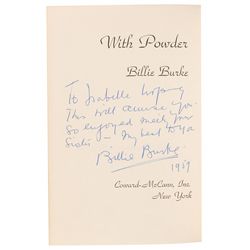 With Powder
Billie Burke
To Isabelle
This will amuse you.
So enjoyed meeting your
Sister — My best to you
Billie Burke
1959
Coward-McCann, Inc.
New York